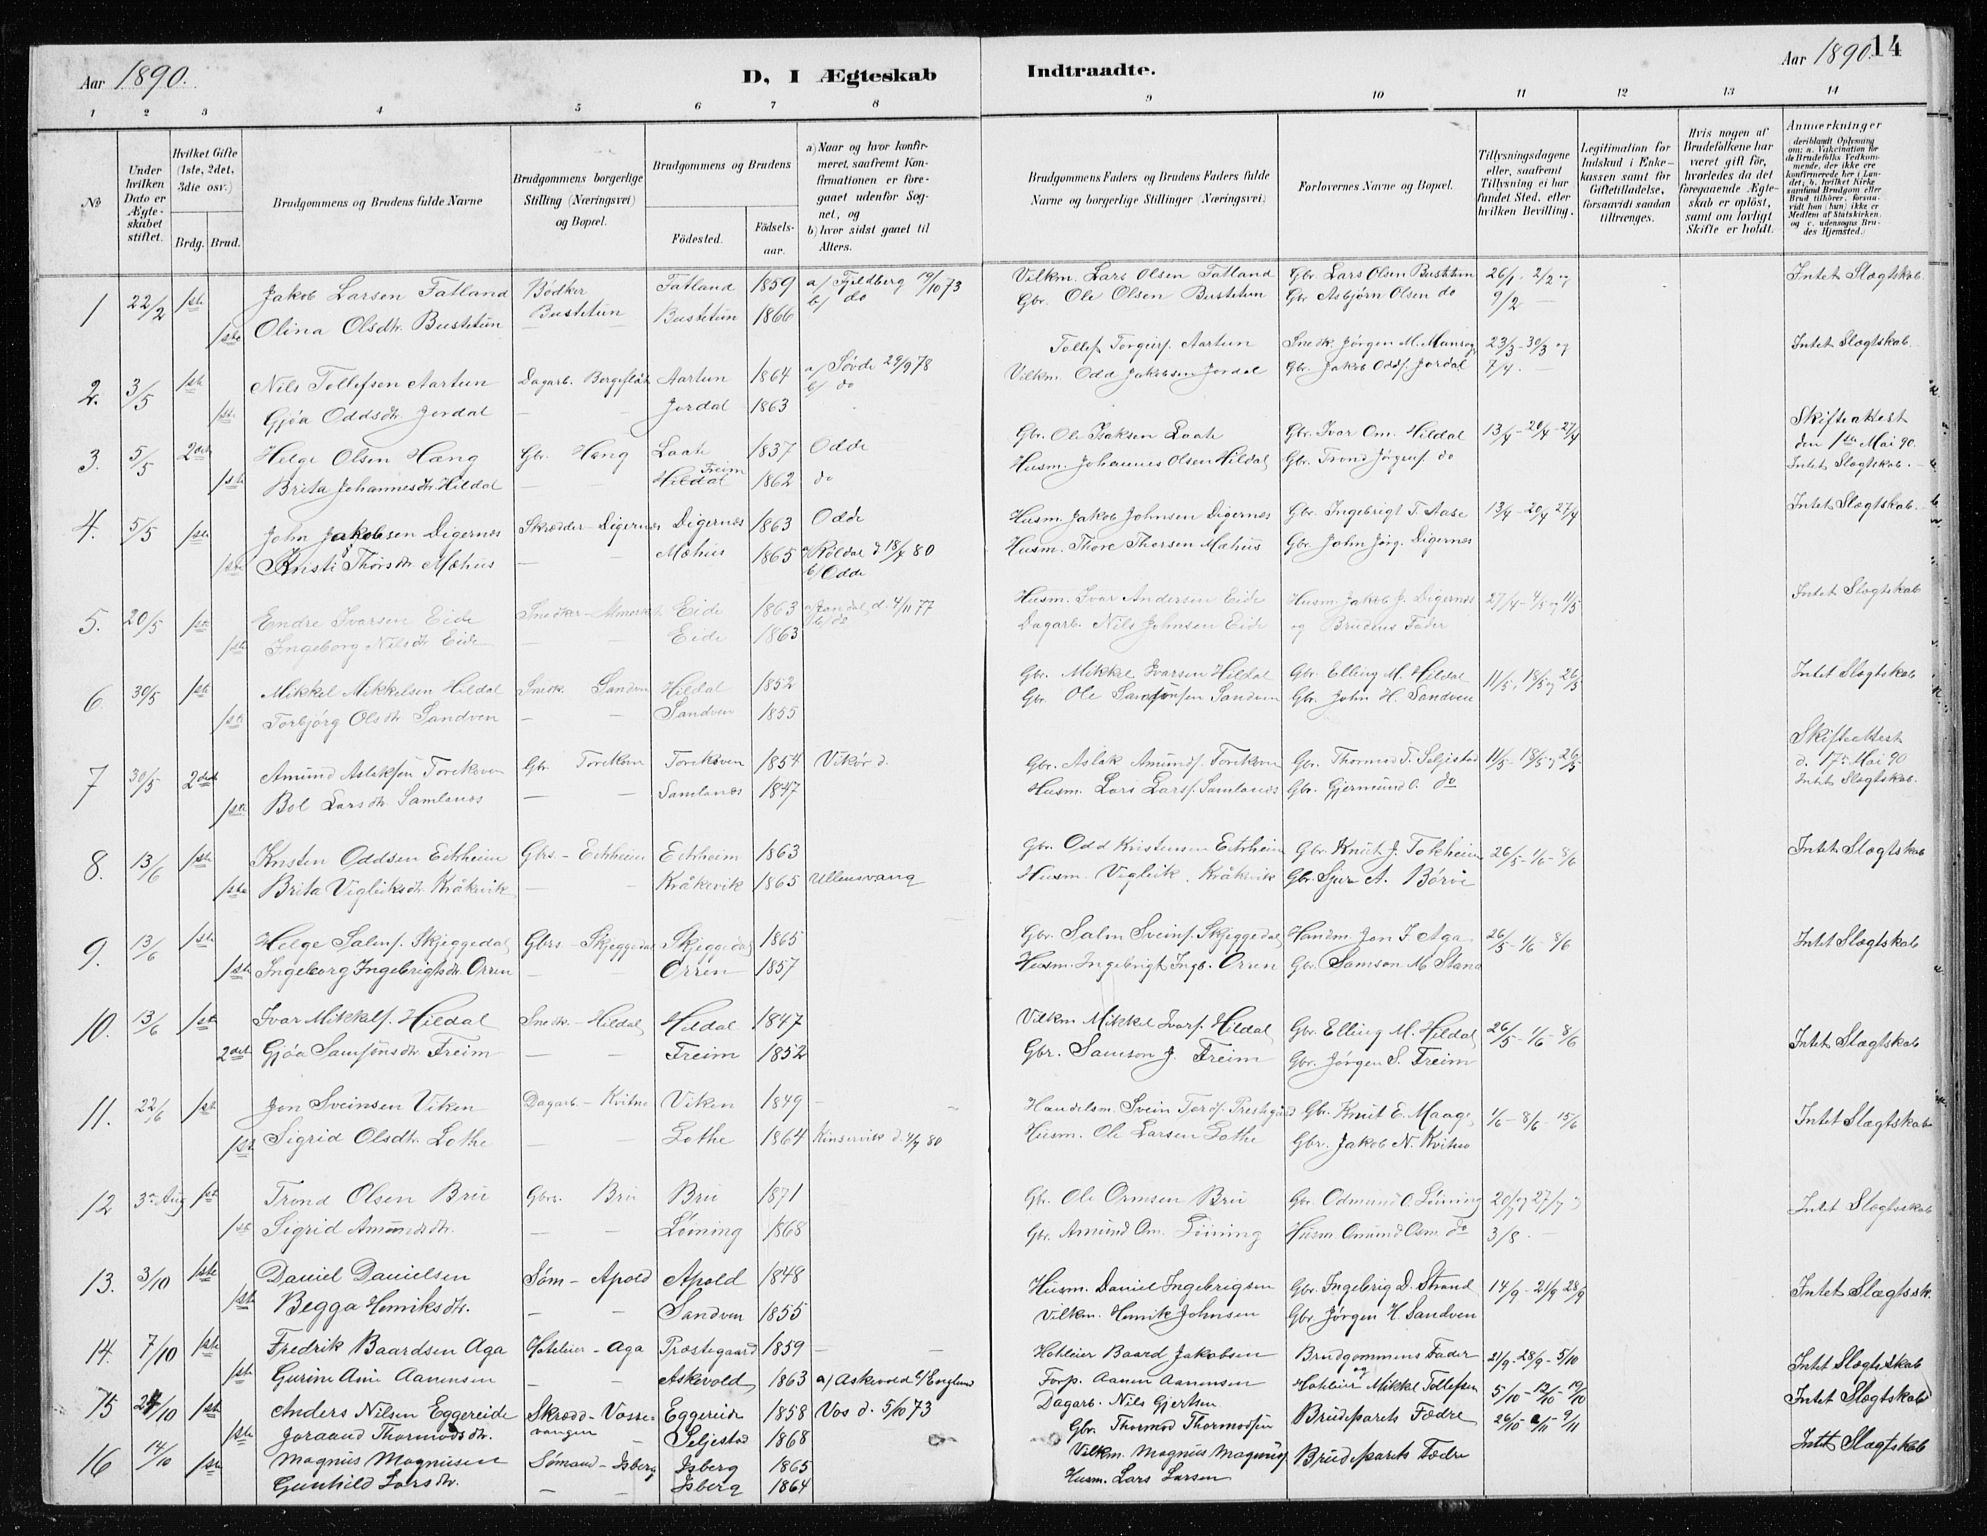 Aar 1890. D, I Ægteskab Indtraadte. Aar 1890. 14
1 2 3 4 5 6 7 8 9 10 11 12 13 14
No
Under hvilken Dato er Ægteskabet stiftet.
Hvilket Gifte (1ste, 2det, 3die osv.)
Brdg. Brud.
Brudgommens og Brudens fulde Navne
Brudgommens borgerlige Stilling (Næringsvei) og Bopæl.
Brudgommens og Brudens
Fødested. Fødselsaar.
a) Naar og hvor konfirmeret, saafremt Konfirmationen er foregaaet udenfor Sognet, og
b) hvor sidst gaaet til Alters.
Brudgommens Faders og Brudens Faders fulde Navne og borgerlige Stillinger (Næringsvei)
Forlovernes Navne og Bopæl.
Tillysningsdagene eller, saafremt Tillysning ei har fundet Sted, efter hvilken Bevilling.
Legitimation for Indskud i Enkekassen samt for Giftetilladelse, forsaavidt saadan tiltrænges.
Hvis nogen af Brudefolkene har været gift før, hvorledes da det foregaaende Ægteskab er opløst, samt om lovligt Skifte er holdt.
Anmærkninger deriblandt Oplysning om: a. Vakcination for de Brudefolks Vedkommende, der ikke ere konfirmerede her i Landet; b. hvilket Kirkesamfund Brudgom eller Brud tilhører, forsaavidt han (hun) ikke er Medlem af Statskirken, og c. udensogns Brudes Hjemsted.)
1 22/2 1ste Jakob Larsen Fatland Bødker Fatland 1859 a/ Fjeldberg 19/10 73 Vilkm. Lars Olsen Fatland Gbr. Lars Olsen Bustetun 26/1 - 2/2 og Intet Slægtskab.
1ste Olina Olsdtr. Bustetun Bustetun Bustetun 1866 b/ do Gbr. Ole Olsen Bustetun Gbr Asbjørn Olsen do 9/2 -
2. 3/5 1ste Nils Tollefsen Aartun Dagarb. Aartun 1864 a/ Søvde 29/9 78 Tollef Aartun Snedk. Jørgen M. 23/3 - 30/3 og Intet Slægtskab.
1ste Gjøa Oddsdtr. Jordal - - Jordal 1863 b/ do Vilkm. Odd Jakobsen Jordal Gbr. Jakob Odds. Jordal 7/4. -
3. 5/5 2det Helge Olsen Hæng Gbr. Hæng Laate 1837 Odde Gbr. Ole Isaksen Laate Gbr. Ivar Om. Hildal 13/4 - 20/4 - 27/4 Skifteattest den 1ste Mai 90.
1ste Brita Johannesdtr. Hildal - - Freim Hildal 1862 do Husm. Johannes Olsen Hildal Gbr. Trond Jørgens. do Intet Slægtskab. -
4. 5/5 1ste John Jakobsen Digernes Skrædder - Digernes Digernes 1863 Odde Husm. Jakob Johnsen Digernes Gbr. Ingebrigt T. Aase 13/4 - 20/4 27/4 Intet Slægtskab.
1ste Kristi Thorsdtr Mæhus - - Mæhus 1865 a/ Røldal d 18/7 80 b/ Odde Husm. Thore Thorsen Mæhus Gbr. John Jørg. Digernes
5. 20/5 1ste Endre Ivarsen Eide Snedker - Eide 1863 d. 4/11 77 Husm. Ivar Andersen Eide Husm. Jakob J. Digernes 27/4 - 4/5 og 11/5 Intet Slægtskab
1ste Ingeborg Nilsdtr Eide - Eide 1863 b/ do Dagarb. Nils Johnsen Eide og Brudens Fader
6 30/5 1ste Mikkel Mikkelsen Hildal Snedk. Sandven Hildal 1852 Gbr. Mikkel Ivarsen Hildal Gbr. Elling M. Hildal 11/5, 18/5 og 26/5 Intet Slægtskab
1ste Torbjørg Olsdtr Sandven - - Sandven 1855 Gbr. Ole Samsonsen Sandven Gbr. John H. Sandven
7 30/5 2det Amund Aslaksen Toreksven Gbr Toreksven Toreksven 1854 Vikør d. Gbr. Aslak Amunds. Toreksven Gbr. Thormod T. Seljestad 11/5 - 18/5 og 26/5 Skifteattest d. 17de Mai 90
1ste Bol Larsdtr. Samlanes - - Samlanes 1847 Husm. Lars Lars. Samlanes Gbr. Gjermund O. do Intet Slægtskab.
8. 13/6 1ste Kristen Oddsen Eitrheim Gbrs - Eitrheim Eitrheim 1863 Gbr. Odd Kristensen Eitrheim Gbr. Knut J. Tokheim 26/5 - 1/6 - 8/6 Intet Slægtskab
1ste Brita Vigleiksdtr. Kråkevik - - Kråkevik 1865 Ullensvang Husm. Vigleik Kråkevik Gbr. Sjur A. Børve
9. 13/6 1ste Helge Salms. Skjeggedal Gbrs - Skjeggedal Skjeggedal 1865 Gbr. Salm Sveins. Skjeggedal Handm. Jon J. Aga 26/5 - 1/6 - 8/6 Intet Slægtskab
1ste Ingeborg Ingebrigtsdtr. Orren - - Orren 1857 Husm. Ingebrigt Ingb. Orren Gbr. Samson M.
10. 13/6 1ste Ivar Mikkels. Hildal Snedk. - Hildal Hildal 1847 Vilkm Mikkel Ivars. Hildal Gbr. Elling M. Hildal 26/5 - 1/6 - 8/6 Intet Slægtskab
2det Gjøa Samsonsdtr. Freim - - Freim 1852 Gbr. Samson J. Freim Gbr. Jørgen S. Freim
11. 22/6 1ste Jon Sveinsen Viken Dagarb. - Kvitno Viken 1849 - Handelsm. Svein Tords. Prestegård Gbr. Knut E. Maage 1/6 - 8/6 - 15/6 Intet Slægtskab
1ste Sigrid Olsdtr. Lothe - - Lothe 1864 Kinservik d. 4/7 80 Husm. Ole Larsen Lothe Gbr. Jakob N. Kvitno
12 3die Aug 1ste Trond Olsen Bru Gbrs. Bru Bru 1871 Gbr. Ole Ormsen Bru Gbr Odmund O. Løining 20/7 27/7 og Intet Slægtskab
1ste Sigrid Amundsdtr. - - Løining 1868 Gbr. Amund Om. Løining Husm Omund Osm. do 3/8. -
13. 3/10 1ste Daniel Danielsen Søm - Apold Apold 1848 Husm. Daniel Ingebrigsen Gbr. Ingebrig D. Strand 14/9 - 21/9 28/9 Intet Slægtssk.
1ste Begga Henriksdtr. - - Sandven 1855 Vilkm. Henrik Johnsen Gbr Jørgen H. Sandven
14. 7/10 1ste Fredrik Baardsen Aga Hoteleier - Aga Præstegaard 1859 - - Hotleier Baard Jakobsen Brudgommens Fader og 21/9 - 28/9 - 5/10 Intet Slægtskab
1ste Gurine Ane Aanensen - - Askevold 1863 a/ Askevold b/ England Forp. Aanen Aanensen Hotleier Mikkel Tollefsen
15 24/10 1ste Anders Nilsen Eggereide Skrædd - Vossevangen Eggereide 1858 Vos d. 5/10 73 Dagarb. Nils Gjertsen Brudeparets Fædre 5/10 - 12/10 - 19/10 Intet Slægtskab
1ste Joraand Thormodsdtr. - Seljestad 1868 Gbr. Thormod Thormodsen
16 14/10 1ste Magnus Magnusen Sømand - Isberg Isberg 1865 Vilkm. Magnus Magnus. Brudeparets Fædre 26/10 - 2/11 - 9/11 Intet Slægtskab
Gunhild Larsdtr. - - Isberg 1864 Husm. Lars Larsen